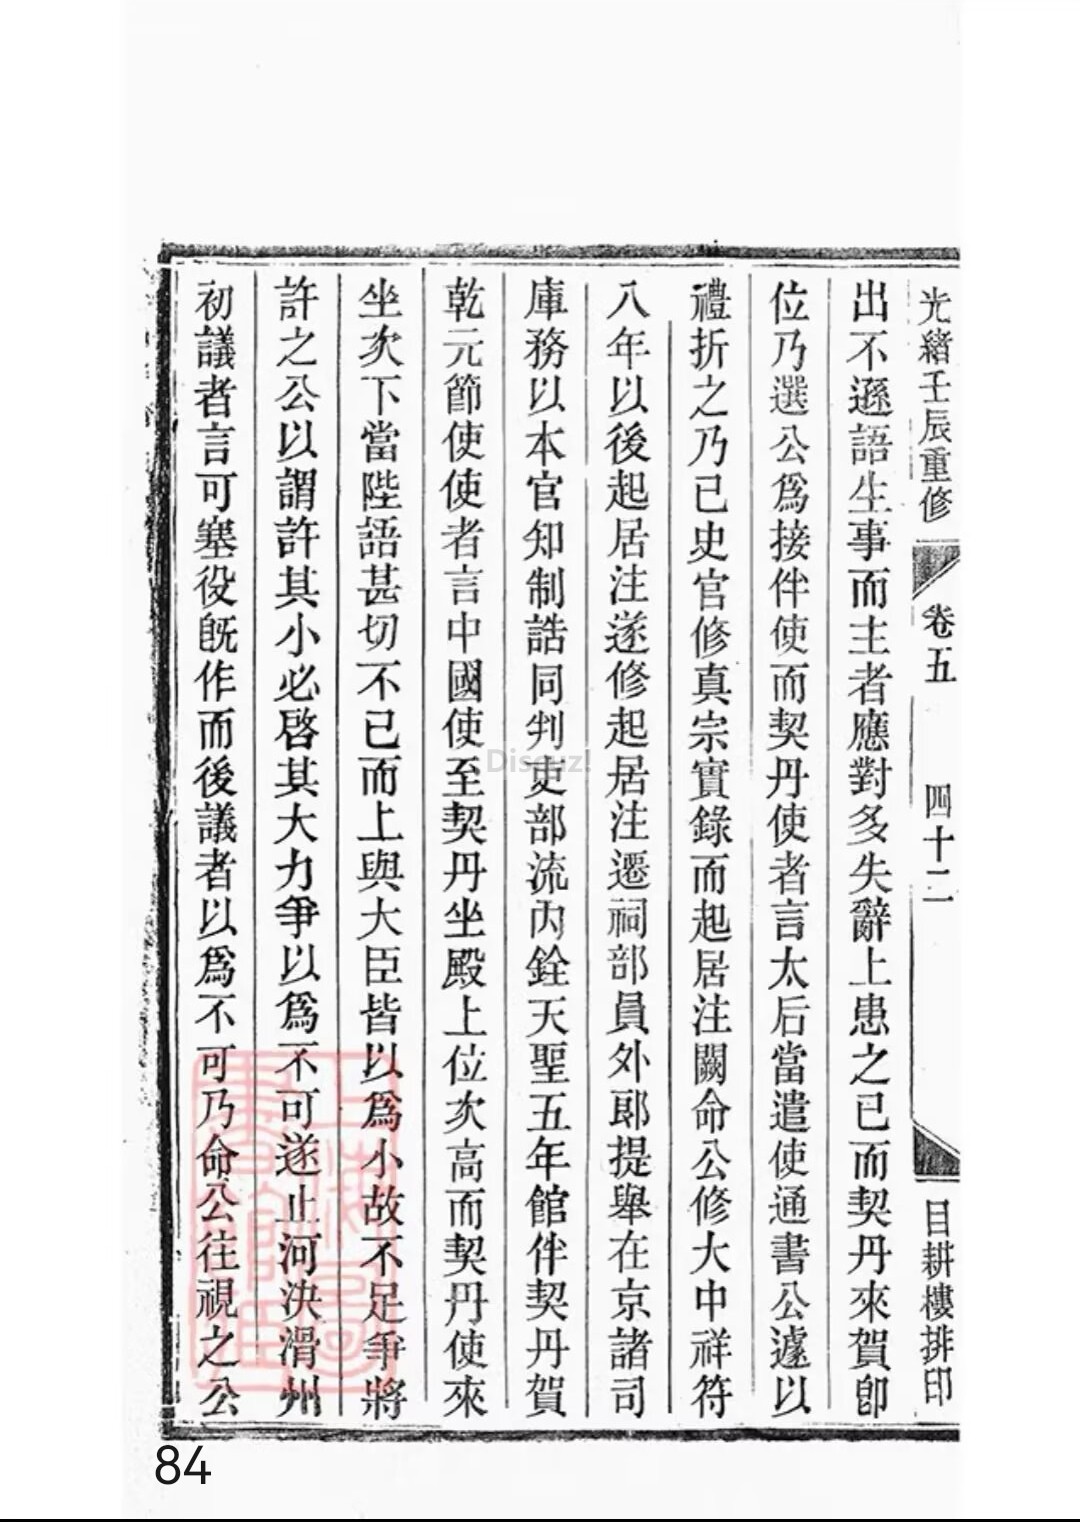 光緒壬辰重修 卷五 四十二 目耕樓排印
出不遜語生事而主者應對多失辭上患之已而契丹來賀卽
位乃選公爲接伴使而契丹使者言太后當遣使通書公遽以
禮折之乃已史官修真宗實錄而起居注闕命公修大中祥符
八年以後起居注遂修起居注遷祠部員外郎提舉在京諸司
庫務以本官知制誥同判吏部流內銓天聖五年館伴契丹賀
乾元節使使者言中國使至契丹坐殿上位次高而契丹使來
坐次下當陛語甚切不已而上與大臣皆以爲小故不足爭將
許之公以謂許其小必啓其大力爭以爲不可遂止河決滑州
初議者言可塞役旣作而後議者以爲不可乃命公往視之公
Discuz!
84